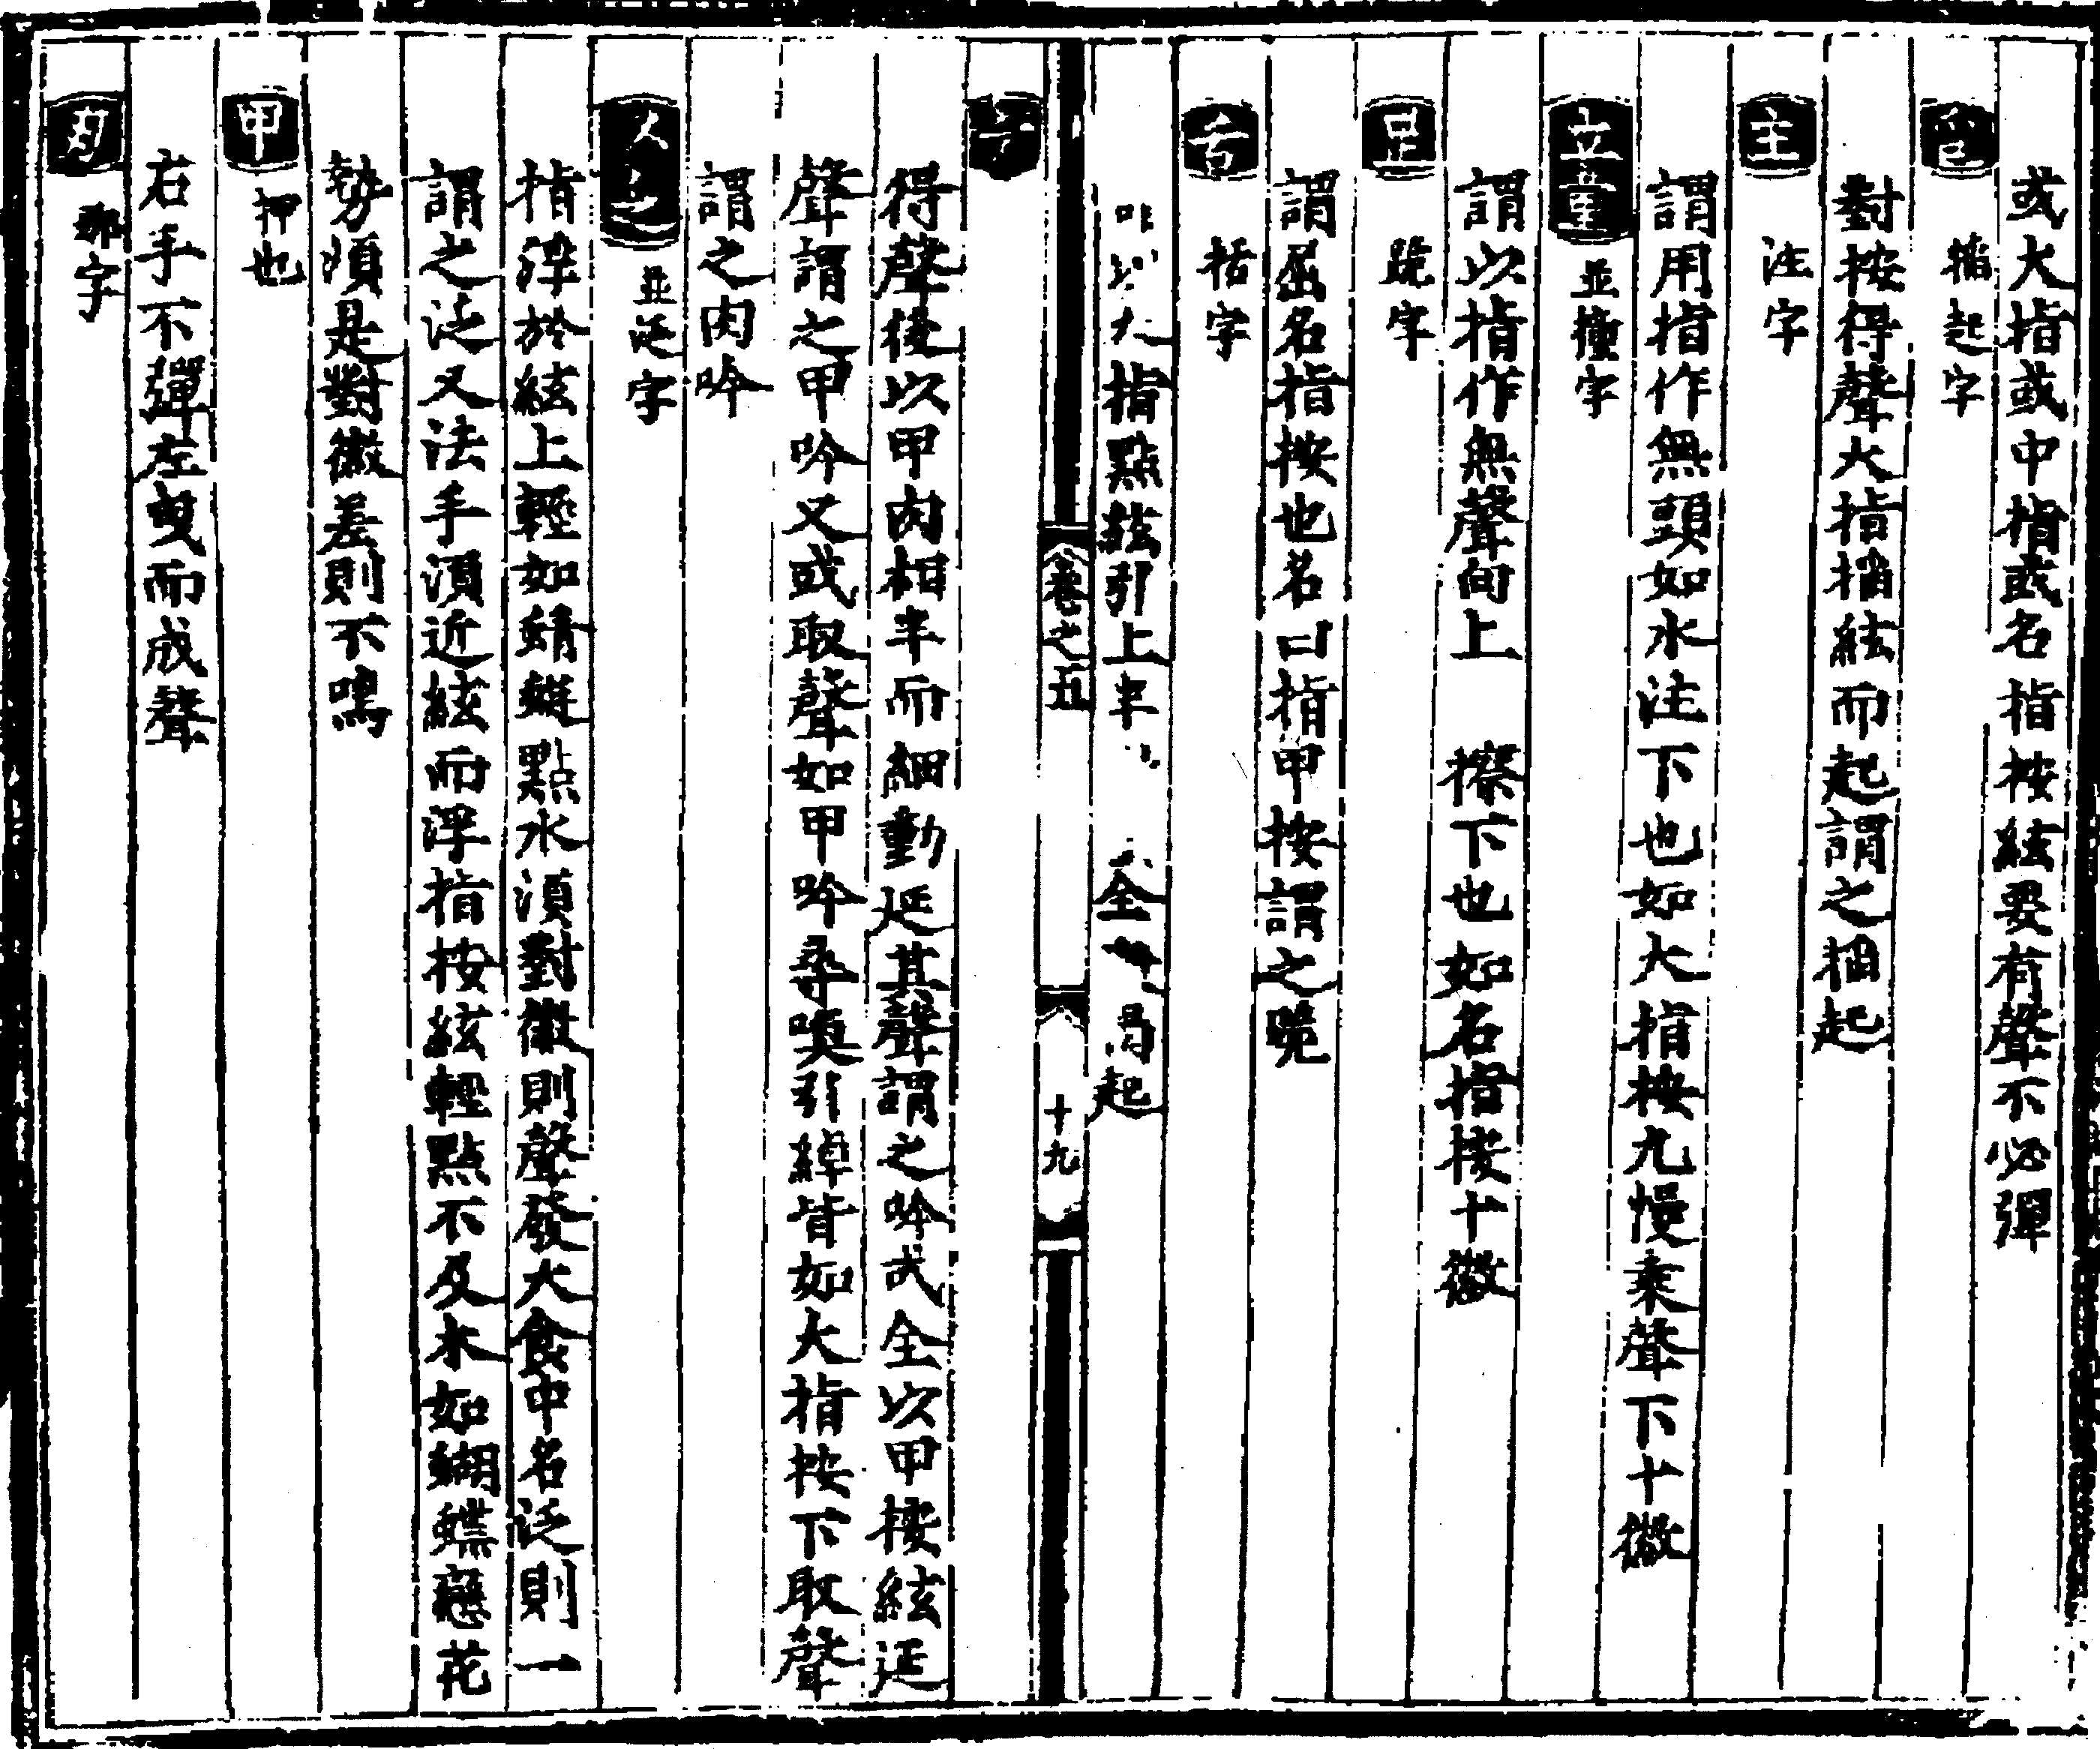 或大指或中指或名指按絃要有聲不必彈
搯起字
對按得聲大指搯絃而起謂之搯起
主 注字
謂用指作無頭如水注下也如大指按九慢乘聲下十徽
立 童 並撞字
謂以指作無聲向上 擦下也如名指按十徽
足 跪字
謂屈名指按也名曰指甲按謂之跪
舌 括字
大指點絃引上半 全 起
卷之五 十九
得聲後以甲肉相半而細動延其聲謂之吟或全以甲按絃延
聲謂之甲吟又或取聲如甲吟尋喚引綽皆如大指按下取聲
謂之肉吟
並泛字
指浮於絃上輕如蜻蜓點水湏對徽則聲發大食中名泛則一
謂之泛又法手湏近絃而浮指按絃輕點不及木如蝴蝶戀花
勢湏是對徽差則不鳴
甲 押也
右手不彈左曳而成聲
那字